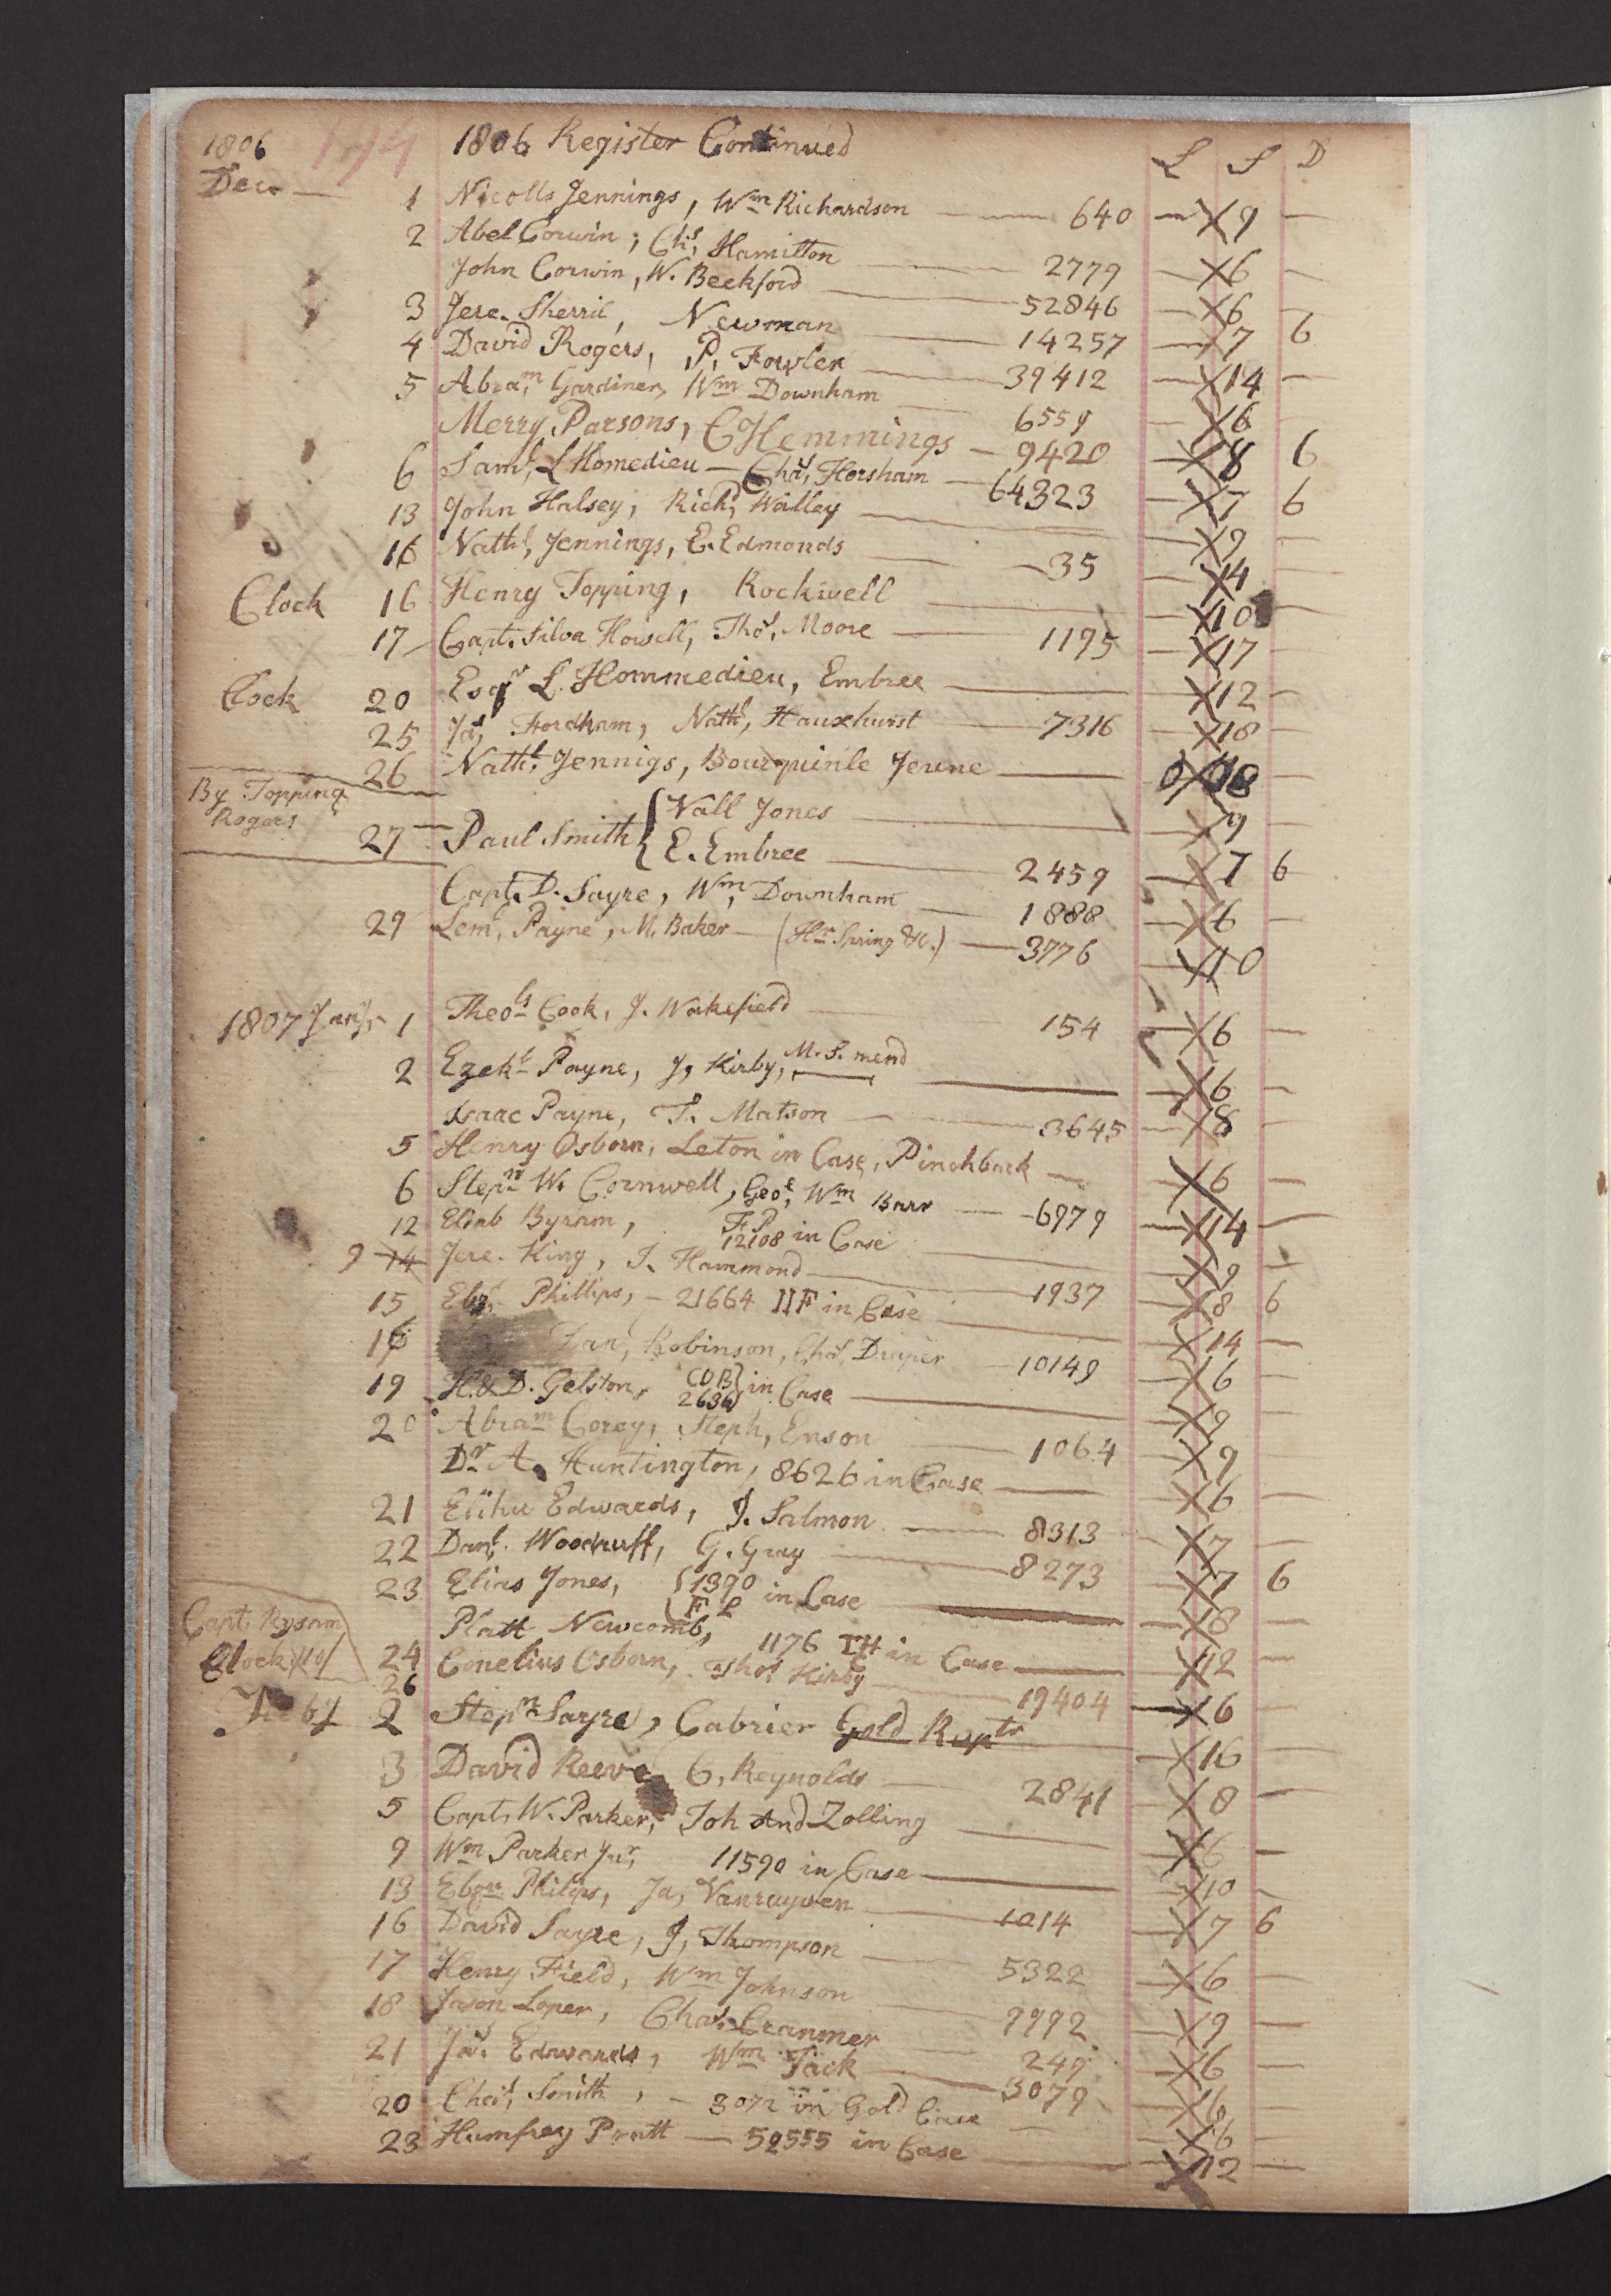 1806 174 1806 Register Continued L S D
Decr —
1 Nicolls Jennings, Wm Richardson — 640 — X 9 —
2 Abel Corwin, Chs, Hamilton — 2779 — X 6 —
John Corwin, W. Beckford — 52846 — X 6 —
3 Jere. Sherril, Newman — 14257 — X 7 6
4 David Rogers, P, Fowler — 39412 — X 14 —
5 Abram Gardiner, Wm Downham — 6559 — X 6 —
Merry Parsons, C Hemmings — 9420 — X 8 6
6 Saml, L Homedieu — Chas, Horsham — 64323 — X 7 6
13 John Halsey, Richd, Walley — X 9 —
16 Nathl, Jennings, E. Edmonds — 35 — X 14 —
Clock 16 Henry Topping, Rockwell — X 10 —
17 Capt. Silva Howell, Thos, Moore — 1195 — X 17 —
Clock 20 Esqr L. Hommedieu, Embree — X 12 —
25 Jas, Fordham, Nathl, Hauxhurst — 7316 — X 18 —
26 Nathl, Jennigs, Bourquinle Jeune — 0 X 18 —
By Topping
Rogers
27 — Paul Smith { Nall Jones — X 9 —
{ E. Embree — 2459 — X 7 6
Capt. D. Sayre, Wm, Downham — 1888 — X 6 —
29 Leml, Payne, M. Baker — (Hr Spring &c.) — 3776 — X 10
1807 Jany, 1 Theols Cook, J. Wakefield — 154 — X 6 —
2 Ezekl Payne, J, Kirby, M. S. mend — X 6 —
Isaac Payne, T. Matson — 3645 — X 8 —
5 Henry Osborn, Leton in Case, Pinchback — X 6 —
6 Stepn W. Cornwell, Geoe, Wm Barr — 6979 — X 14 —
12 Eliab Byram, F P 12108 in Case — X 9 —
9 14 Jere. King, J. Hammond — 1937 — X 8 6
15 Ebr, Phillips, — 21664 IIF in Case — X 14 —
16 Danl, Robinson, Chas, Draper — 10149 — X 6 —
19 H. & D. Gelston, COB 2636 } in Case — X 9 —
20 Abram Corey, Steph, Enson — 1064 — X 9 —
Dr A. Huntington, 8626 in Case — X 6 —
21 Elihu Edwards, J. Salmon — 8313 — X 7 —
22 Danl. Woodruff, G. Gray — 8273 — X 7 6
23 Elias Jones, { 1390 F L in Case — X 8 —
Capt Rysam
Clock 10/
Platt Newcomb, 1176 IH in Case — X 12 —
24
26 Conelius Osborn, Thos Kirby — 19404 — X 6 —
Feby 2 Stepn Sayre, Cabrier Gold Reptr — X 16 —
3 David Reeve, G, Reynolds — 2841 — X 8 —
5 Capt. W. Parker, Joh And Zolling — X 6 —
9 Wm Parker Jur, 11590 in Case — X 10 —
13 Eben Philips, Ja, Vanruyven — 1014 — X 7 6
16 David Sayre, J, Thompson — 5322 — X 6 —
17 Henry Field, Wm Johnson — 9992 — X 9 —
18 Jason Loper, Chas. Cranmer — 249 — X 6 —
21 Jas. Edwards, Wm Jack — 3079 — X 6 —
20 Chas, Smith, — 3072 in Gold Case — X 6 —
23 Humfrey Pratt — 52555 in Case — X 12 —